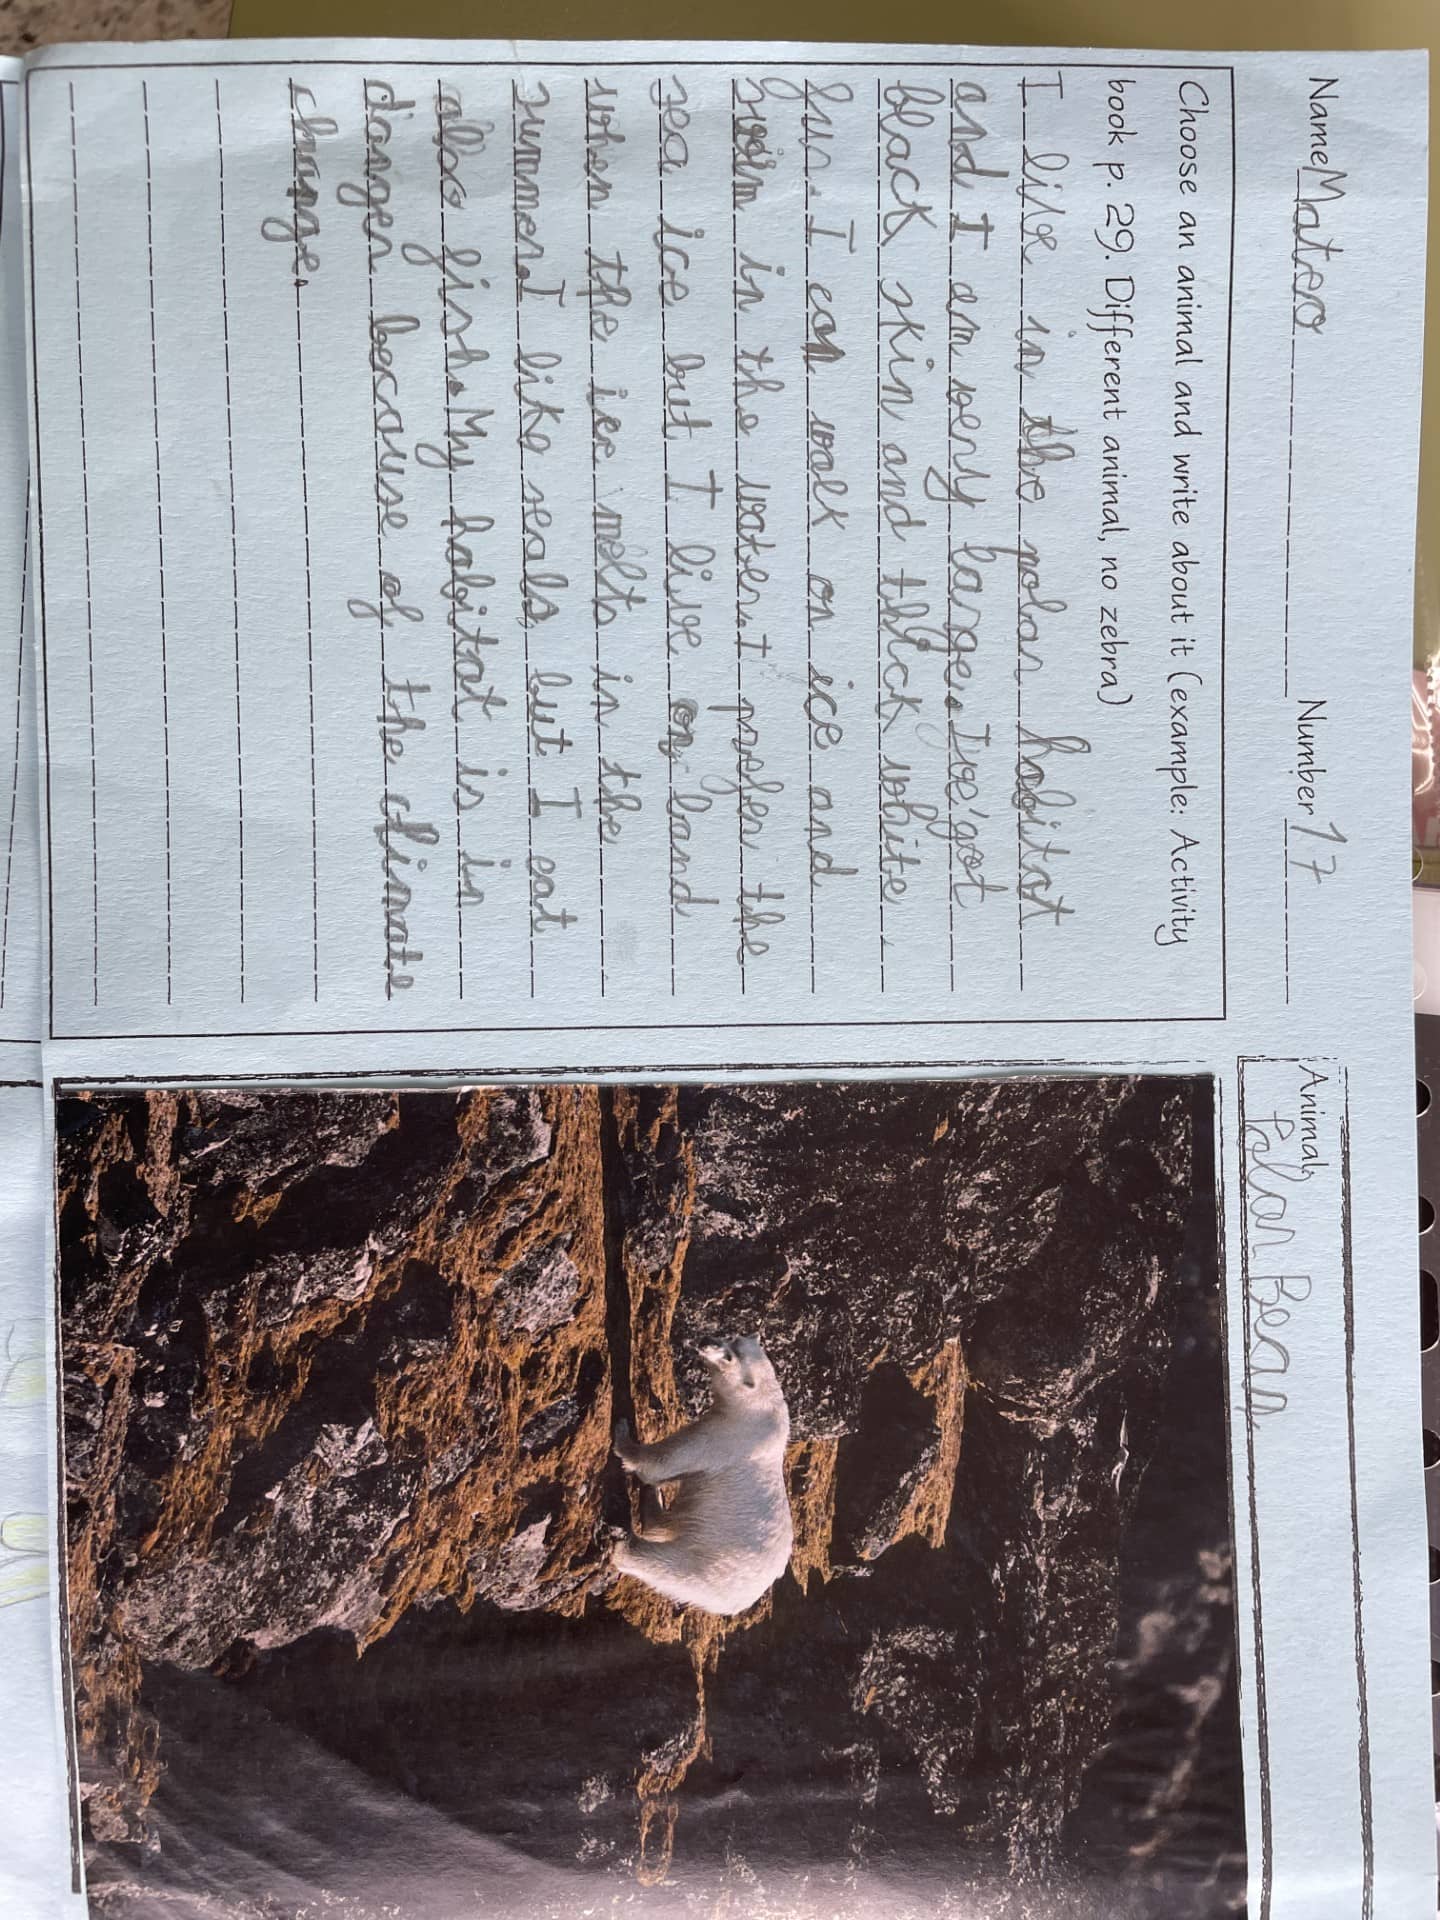 Name Mateo Number 17
Choose an animal and write about it (example: Activity
book p. 29. Different animal, no zebra)
I live in the polar habitat
and I am very large. I've got
black skin and thick white
fur. I can walk on ice and
swim in the water. I prefer the
sea ice but I live on land
when the ice melts in the
summer. I like seals, but I eat
also fish. My habitat is in
danger because of the climate
change.
Animal: Polar Bear